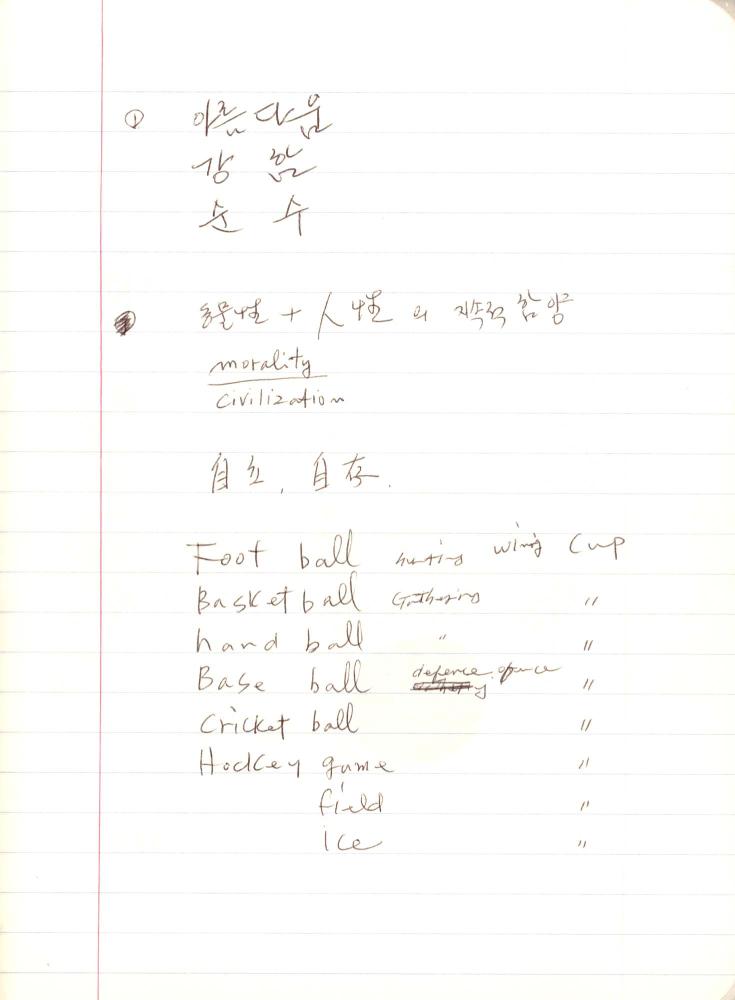 ① 아름다움
강 함
순 수
동물性 + 人性 의 지속적 함양
morality
civilization
自立, 自存.
Foot ball hunting wing Cup
Basket ball Gathering "
hand ball " "
Base ball defence. ofence "
Cricket ball "
Hockey game "
field "
ice "